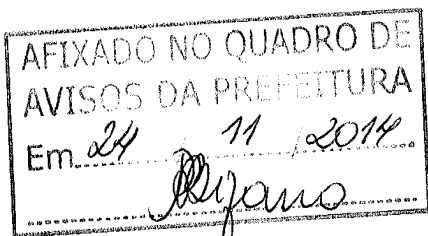 AFIXADO NO QUADRO DE
AVISOS DA PREFEITURA
Em 24 / 11 / 2014